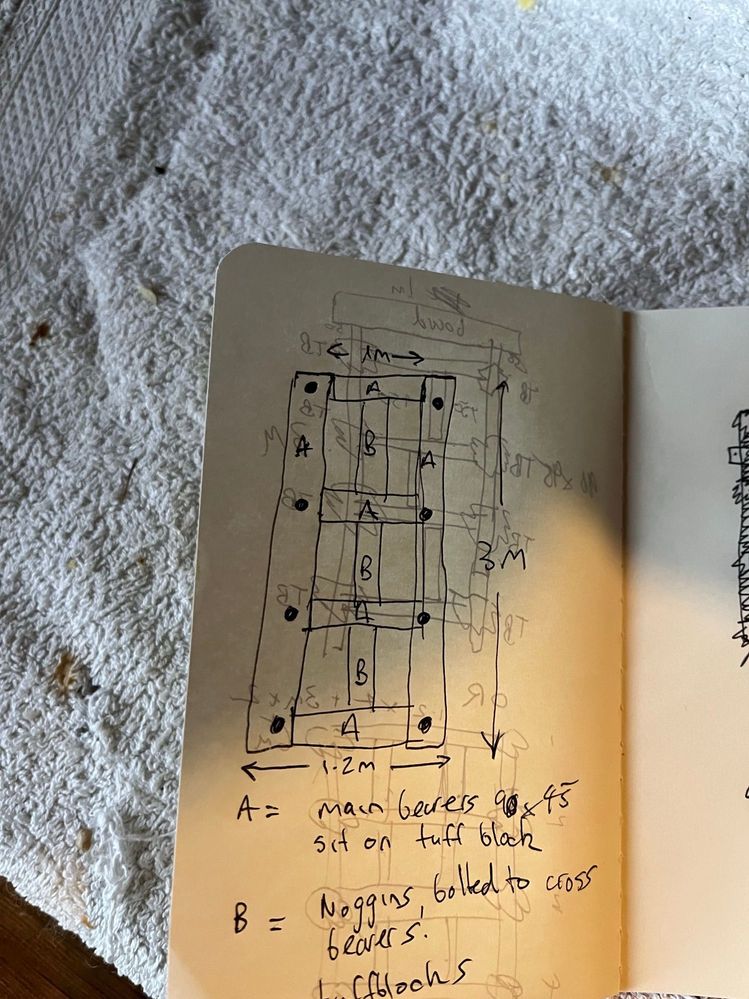 1m
A
A
B
A
A
B
3M
A
B
A
1.2m
A = main bearers 90x45
sit on tuff block
B = Noggins, bolted to cross
bearers.
tuffblocks